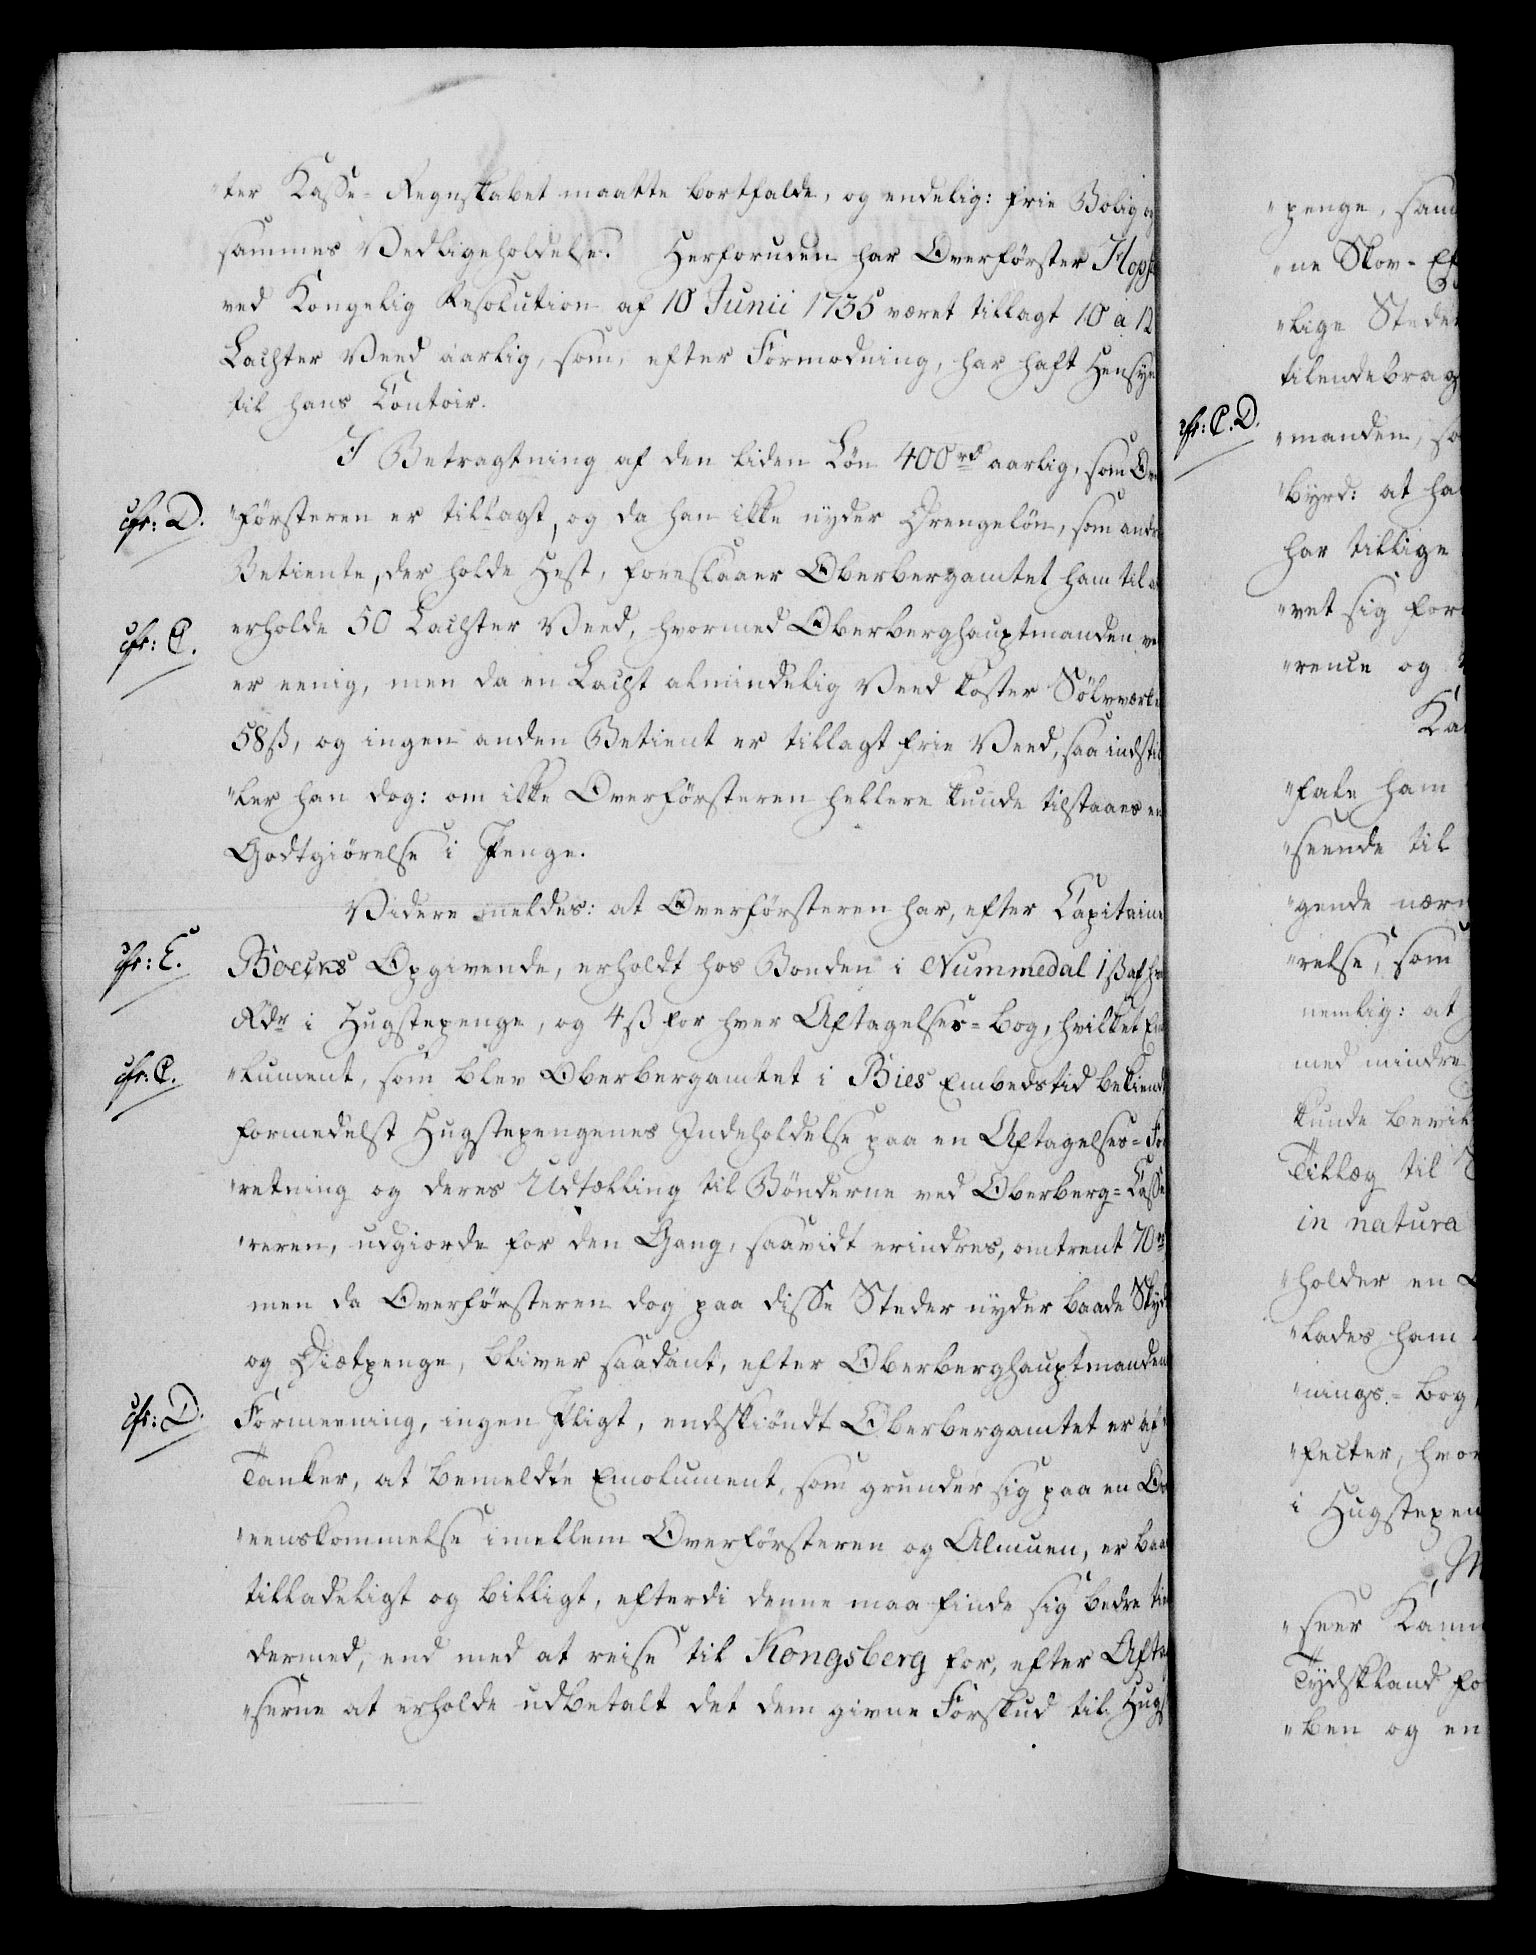 "ter Kasse-Regnskabet maatte bortfalde, og endelig: frie Bolig og
sammes Vedligeholdelse. Herforuden har Overförster Hopf
ved Kongelig Resolution af 10 Junii 1735 været tillagt 10 a 12
Lachter Veed aarlig, som, efter Formodning, har haft Hensyn
til hans Contoir.
I Betragtning af den liden Lön 400 rd aarlig, som Ov
cfr: D. "försteren er tillagt, og da han ikke nyder Drengelön, som andre
Betiente, der holde Hest, foreslaaer Oberbergamtet ham til at
cfr: C. erholde 50 Lachter Veed, hvormed Oberberghauptmanden vel
er eenig, men da en Lacht almindelig Veed koster Sölvværket
58 ß, og ingen anden Betient er tillagt frie Veed, saa indstil
"ler han dog: om ikke Overförsteren hellere kunde tilstaaes en
Godtgiörelse i Penge.
Videre meldes: at Overförsteren har, efter Capitaine
cfr: E. Boecks Opgivende, erholdt hos Bonden i Nummedal 1 ß af hver
Rdr i Hugstepenge, og 4 ß for hver Aftagelses-bog, hvilket Emo
cfr: C. "lument, som blev Oberbergamtet i Bies Embedstid bekiendt
formedelst Hugstepengenes Indeholdelse paa en Aftagelses-For
"retning og deres Udtælling til Bönderne ved Oberberg-Casse
"reren, udgiorde for den Gang, saavidt erindres, omtrent 70 rd
men da Overförsteren dog paa disse Steder nyder baade Skyds
og Diætpenge, bliver saadant, efter Oberberghauptmandens
cfr: D. Formeening, ingen Pligt, endskiöndt Oberbergamtet er af
Tanker, at bemeldte Emolument, som grunder sig paa en Ov
"eenskommelse imellem Overförsteren og Almuen, er baade
tilladeligt og billigt, efterdi denne maa finde sig bedre tient
dermed, end med at reise til Kongsberg for, efter Aftag
"serne at erholde udbetalt det dem givne Forskud til Hugst
"penge, sam
"ne Skov-Ef
"lige Steder
tilendebrag
cfr: C. D. "manden, so
"byrd: at ha
har tillige
"vet sig for
"rence og
Ka
"fale ham
"seende til
"gende nærm
"relse, som
nemlig: at
med mindre
kunde bevil
Tillæg til
in natura
"holder en
"lades ham
"nings-bog,
"fecter, hvor
i Hugstepen
M
"seer Kamm
Tydskland fo
"ben og en